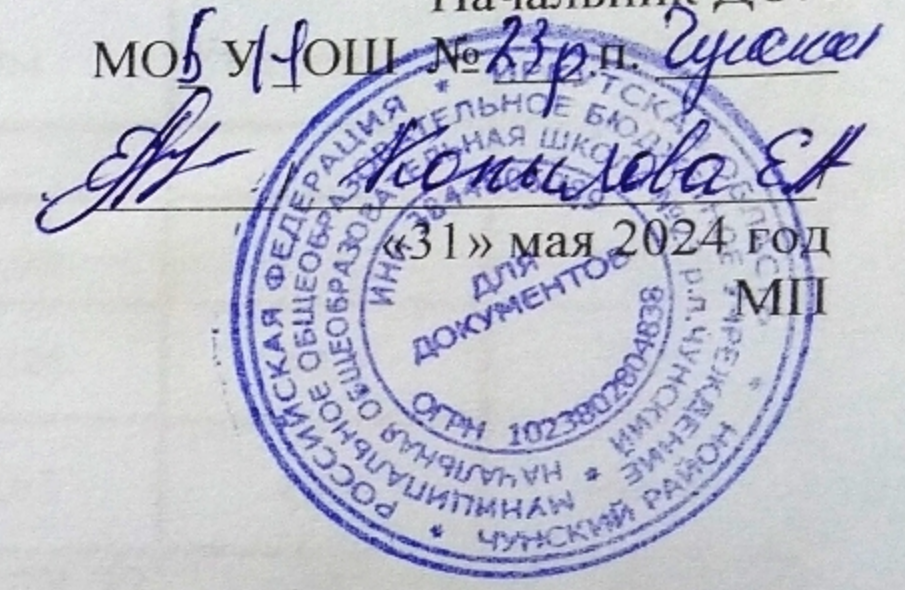 Начальник
МОБ У НОШ № 23 р.п. Чунский
Копылова Е А
«31» мая 2024 год
МП
РОССИЙСКАЯ ФЕДЕРАЦИЯ * ИРКУТСКАЯ ОБЛАСТЬ * ЧУНСКИЙ РАЙОН *
МУНИЦИПАЛЬНОЕ ОБЩЕОБРАЗОВАТЕЛЬНОЕ БЮДЖЕТНОЕ УЧРЕЖДЕНИЕ *
НАЧАЛЬНАЯ ОБЩЕОБРАЗОВАТЕЛЬНАЯ ШКОЛА р.п. ЧУНСКИЙ
ИНН
ДЛЯ
ДОКУМЕНТОВ
ОГРН 1023802804838